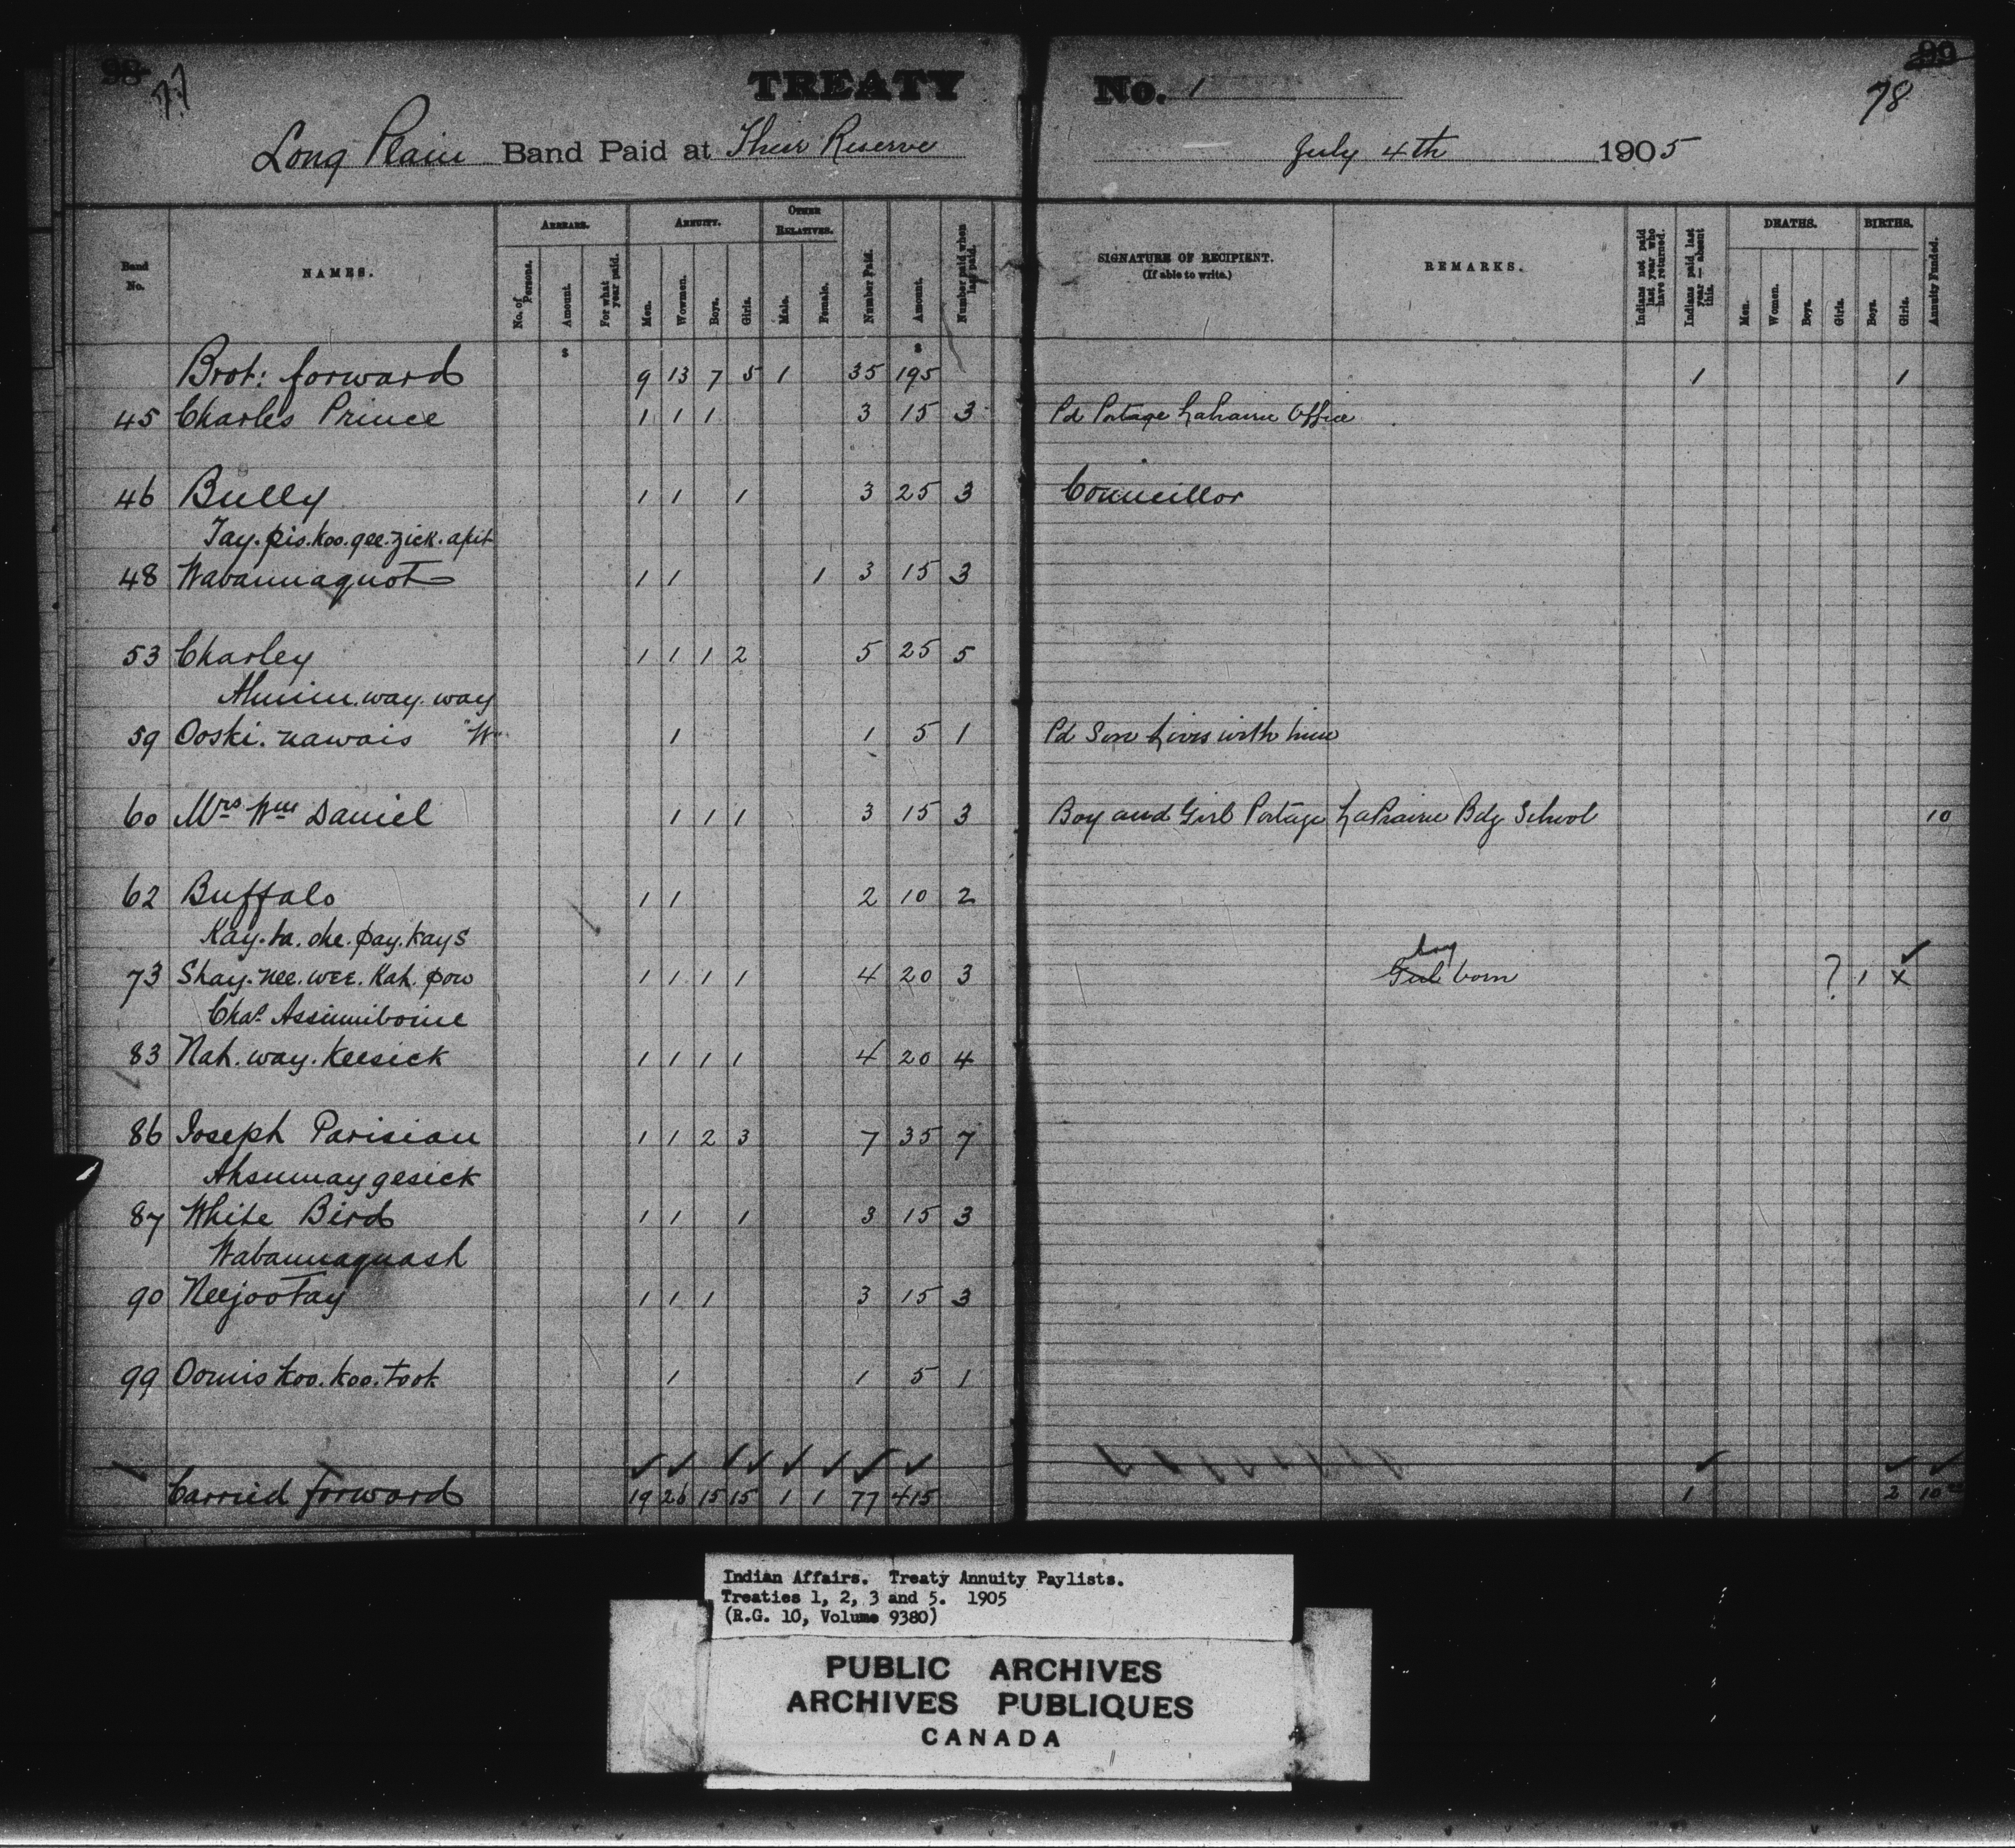 98 77 TREATY No. 1 99 78
Long Plain Band Paid at Their Reserve July 4th 1905
Band No. NAMES. ARREARS. No. of Persons. Amount. For what year paid. ANNUITY. Men. Women. Boys. Girls. OTHER RELATIVES. Male. Female. Number Paid. Amount. Number paid when last paid. SIGNATURE OF RECIPIENT. (If able to write.) REMARKS. Indians not paid last year who have returned. Indians paid last year — absent this. DEATHS. Men. Women. Boys. Girls. BIRTHS. Boys. Girls. Annuity Funded.
$ $
Brot: forward 9 13 7 5 1 35 195 1 1
45 Charles Prince 1 1 1 3 15 3 Pd Portage LaPrairie Office
46 Bully 1 1 1 3 25 3 Councillor
Tay.pis.koo.gee.zick.apit
48 Wabannaquot 1 1 1 3 15 3
53 Charley 1 1 1 2 5 25 5
way.way
59 Ooski.nawais "W" 1 1 5 1 Pd Son Lives with him
60 Mrs Wm Daniel 1 1 1 3 15 3 Boy and Girl Portage LaPrairie Bdg School 10
62 Buffalo 1 1 2 10 2
Kay.ta.che.pay.kays
boy
73 Shay.nee.wee.Kah.pow 1 1 1 1 4 20 3 Girl born ? 1 x
Chas Assinniboine
83 Nah.way.Keesick 1 1 1 1 4 20 4
86 Joseph Parisian 1 1 2 3 7 35 7
Ahsumaygesick
87 White Bird 1 1 1 3 15 3
Wabannaquash
90 Neejootay 1 1 1 3 15 3
99 Oomis koo.koo.took 1 1 5 1
Carried forward 19 26 15 15 1 1 77 415 1 2 10
Indian Affairs. Treaty Annuity Paylists.
Treaties 1, 2, 3 and 5. 1905
(R.G. 10, Volume 9380)
PUBLIC ARCHIVES
ARCHIVES PUBLIQUES
CANADA